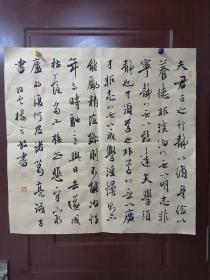 夫君子之行静以修身儉以
養德非淡泊無以明志非
寧静無以致遠夫學須
静也才須學也非學無以廣
才非志無以成學慢則不
能勵精險躁則不能治性
年与時馳意与日去遂成
枯落多不接世悲守窮
廬将復何及諸葛亮誡子
書